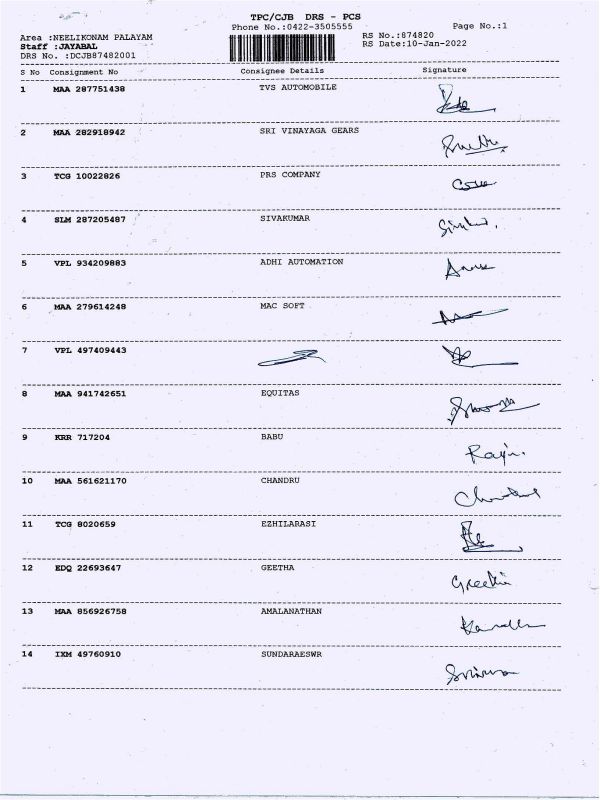 TPC/CJB DRS - PCS
Phone No.:0422-3505555 Page No.:1
Area :NEELIKONAM PALAYAM
RS No.:874820
Staff :JAYABAL
RS Date:10-Jan-2022
DRS No. :DCJB87482001
S No Consignment No Consignee Details Signature
1 MAA 287751438 TVS AUTOMOBILE
2 MAA 282918942 SRI VINAYAGA GEARS
3 TCG 10022826 PRS COMPANY
4 SLM 287205487 SIVAKUMAR
5 VPL 934209883 ADHI AUTOMATION
6 MAA 279614248 MAC SOFT
7 VPL 497409443
8 MAA 941742651 EQUITAS
9 KRR 717204 BABU
10 MAA 561621170 CHANDRU
11 TCG 8020659 EZHILARASI
12 EDQ 22693647 GEETHA
13 MAA 856926758 AMALANATHAN
14 IXM 49760910 SUNDARAESWR